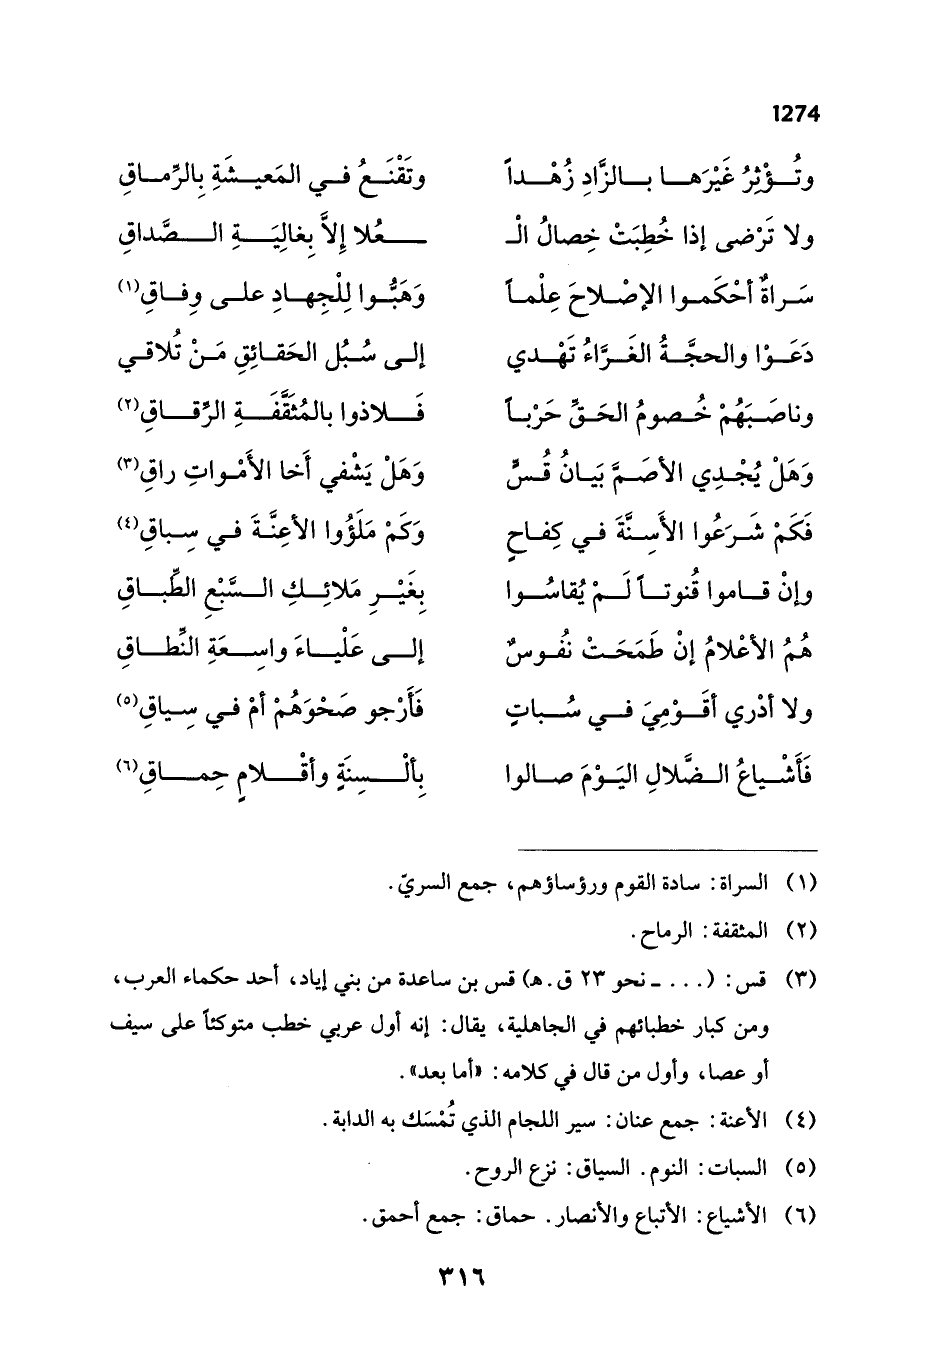 1274
وتُـؤْثِرُ غَيْرَهـا بـالزَّادِ زُهْـداً وتَقْنَـعُ فـي المَعيـشَةِ بِالرِّمـاقِ
ولا تَرْضى إذا خُطِبَتْ خِصالُ الْـ ـعُلا إلاَّ بِغالِيَـةِ الـصَّداقِ
سَـراةٌ أحْكَمـوا الإصْـلاحَ عِلْمـاً وَهَبُّـوا لِلْجِهـادِ علـى وِفـاقِ(١)
دَعَـوْا والحجَّـةُ الغَـرَّاءُ تَهْـدي إلـى سُـبُلِ الحَقـائِقِ مَـنْ تُلاقـي
وناصَـبَهُمْ خُـصومُ الحَـقِّ حَرْبـاً فَـلاذوا بالمُثَقَّفَـةِ الرِّقـاقِ(٢)
وَهَلْ يُجْـدِي الأصَـمَّ بَيَـانُ قُـسٍّ وَهَلْ يَشْفي أخا الأمْـواتِ راقِ(٣)
فَكَمْ شَـرَعُوا الأسِـنَّةَ في كِفـاحٍ وَكَمْ مَلَؤُوا الأعِنَّـةَ في سِـباقِ(٤)
وإنْ قـاموا قُنوتـاً لَـمْ يُقاسُـوا بِغَيْـرِ مَلائِـكِ الـسَّبْعِ الطِّبـاقِ
هُمُ الأعْلامُ إنْ طَمَحَـتْ نُفُـوسٌ إلـى عَلْيـاءَ واسِـعَةِ النِّطـاقِ
ولا أدْري أقَـوْمِيَ فـي سُـباتٍ فَأَرْجو صَحْوَهُمْ أمْ في سِياقِ(٥)
فَأَشْـياعُ الـضَّلالِ اليَـوْمَ صـالوا بِألْـسِنَةٍ وأقْـلامٍ حِمـاقِ(٦)
(١) السراة: سادة القوم ورؤساؤهم، جمع السريّ.
(٢) المثقفة: الرماح.
(٣) قس: (... ـ نحو ٢٣ ق.هـ) قس بن ساعدة من بني إياد، أحد حكماء العرب،
ومن كبار خطبائهم في الجاهلية، يقال: إنه أول عربي خطب متوكئاً على سيف
أو عصا، وأول من قال في كلامه: «أما بعد».
(٤) الأعنة: جمع عنان: سير اللجام الذي تُمْسَك به الدابة.
(٥) السبات: النوم. السياق: نزع الروح.
(٦) الأشياع: الأتباع والأنصار. حماق: جمع أحمق.
٣١٦